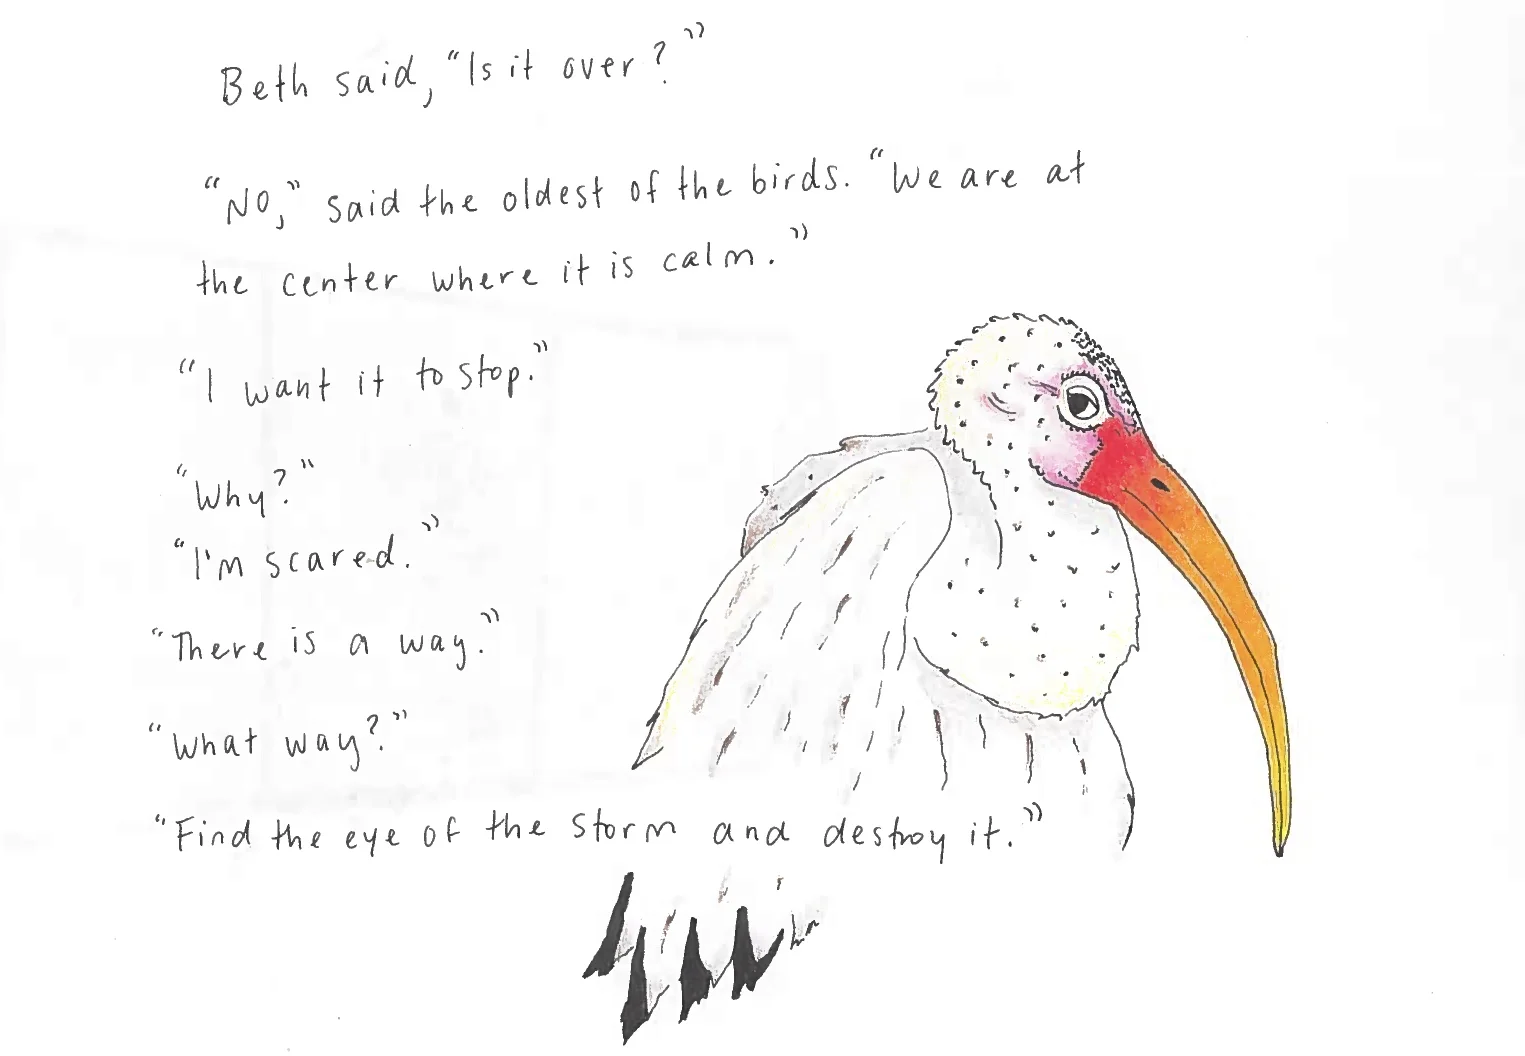 Beth said, “Is it over?”
“No,” said the oldest of the birds. “We are at
the center where it is calm.”
“I want it to stop.”
“Why?”
“I'm scared.”
“There is a way.”
“What way?”
“Find the eye of the storm and destroy it.”